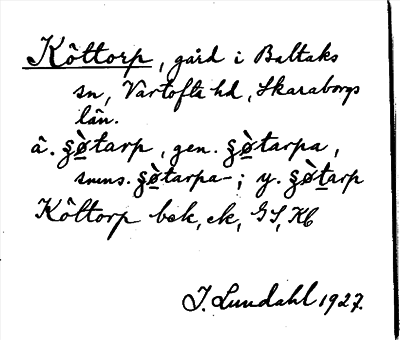 Kôttorp, gård i Baltaks
sn, Vartofta hd, Skaraborgs
län.
ä. ʂø̀tarp, gen. ʂø̀tarpa,
smns. ʂø̀tarpa-; y. ʂø̀tarp
Kôttorp bok, ek, GS, Kb
J. Lundahl 1927.